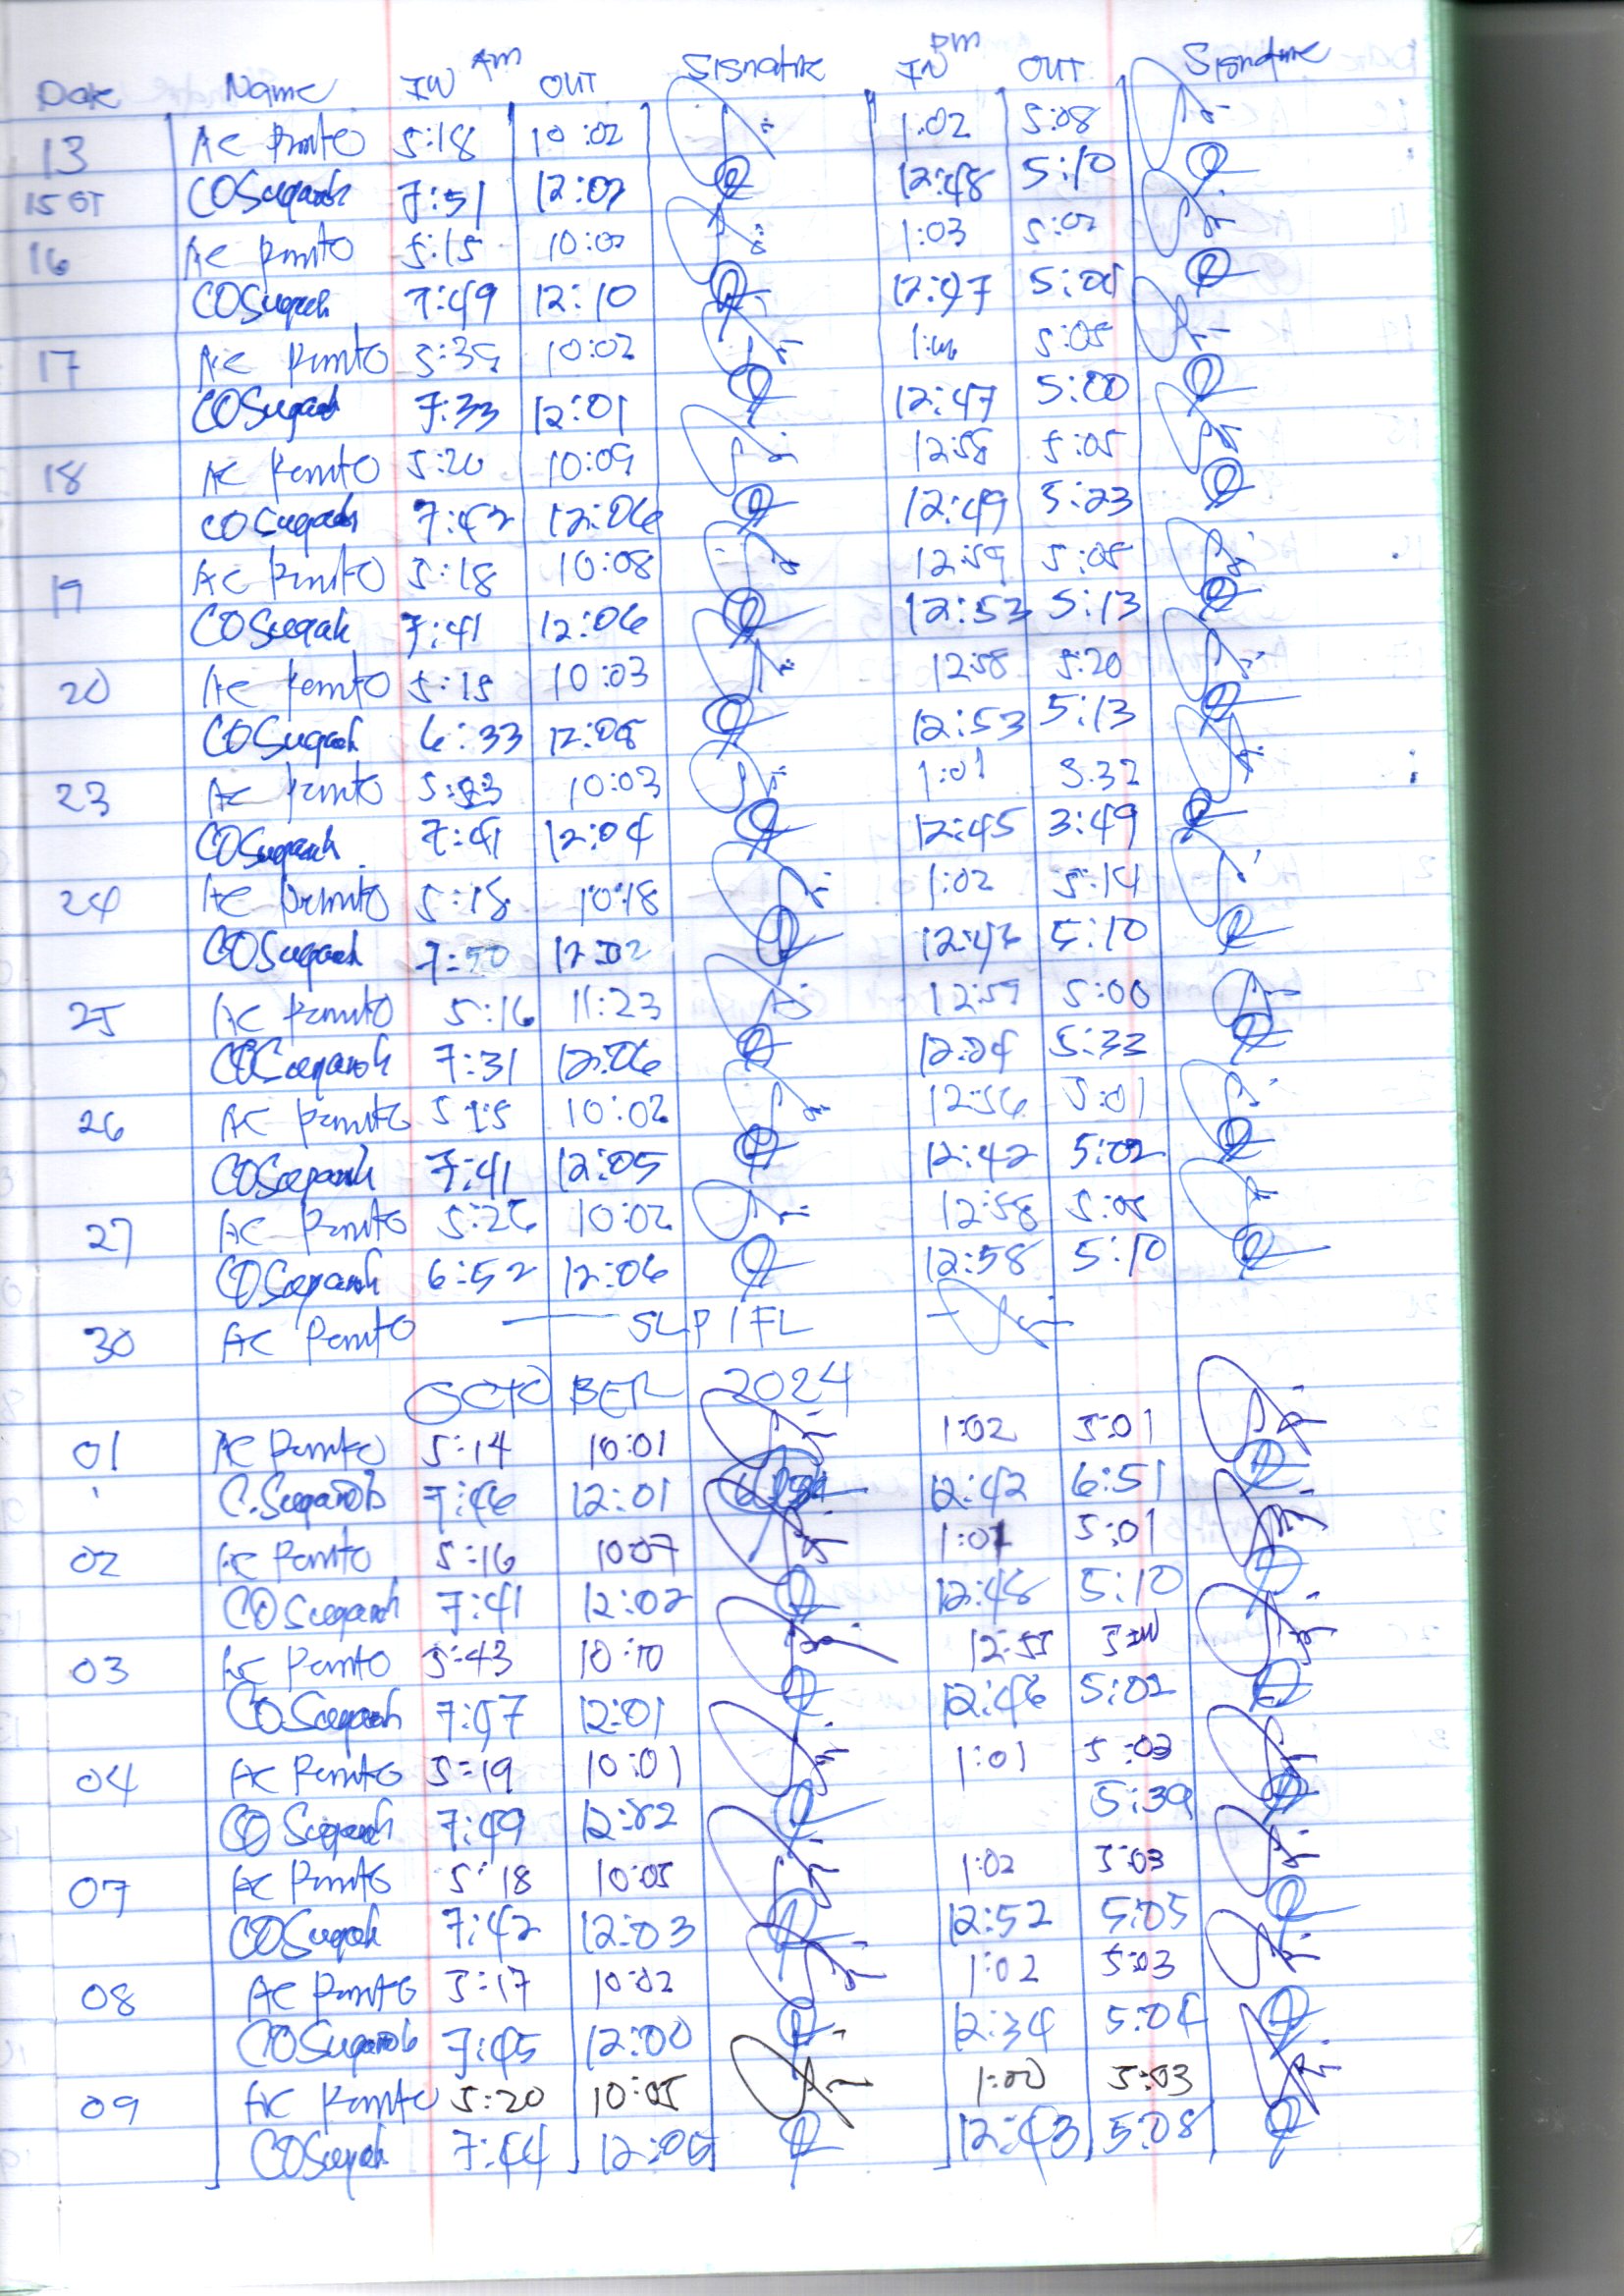 Am Pm
Date Name IN OUT Signature IN OUT Signature
13 AC Pmto 5:18 10:02 1:02 5:08
15 OT COSugarob 7:51 12:02 12:48 5:10
16 AC Pmto 5:15 10:02 1:03 5:02
COSugarob 7:49 12:10 12:47
17 AC Pmto 5:35 10:02 5:05
COSugarob 7:33 12:01 12:47 5:00
18 AC Pmto 5:20 10:09 12:58 5:05
COSugarob 7:42 12:06 12:49 5:23
19 AC Pmto 5:18 10:08 12:59 5:05
COSugarob 7:41 12:06 12:53 5:13
20 AC Pmto 5:15 10:03 12:58 5:20
COSugarob 6:33 12:05 12:53 5:13
23 AC Pmto 10:03 1:01 3:32
COSugarob 7:41 12:04 12:45 3:49
24 AC Pmto 5:18 10:18 1:02 5:14
COSugarob 7:50 12:02 12:46 5:10
25 AC Pmto 5:16 11:23 12:59 5:00
COSugarob 7:31 12:06 12:04 5:33
26 AC Pmto 5:15 10:02 12:56 5:01
COSugarob 7:41 12:05 12:42 5:02
27 AC Pmto 5:26 10:02 12:58 5:05
COSugarob 6:52 12:06 12:58 5:10
30 AC Pmto SLP / FL
OCTOBER 2024
01 AC Pmto 5:14 10:01 1:02 5:01
C.Sugarob 7:46 12:01 12:42 6:51
02 AC Pmto 5:16 10:07 1:01 5:01
COSugarob 7:41 12:02 12:48 5:10
03 AC Pmto 5:43 10:10 12:55
COSugarob 7:47 12:01 12:46 5:02
04 AC Pmto 5:19 10:01 1:01 5:03
COSugarob 7:49 12:02 5:39
07 AC Pmto 5:18 10:05 1:02 5:03
COSugarob 7:42 12:03 12:52 5:05
08 AC Pmto 5:17 10:02 1:02 5:03
COSugarob 7:45 12:00 12:34 5:04
09 AC Pmto 5:20 10:05 1:00 5:03
COSugarob 7:44 12:05 12:43 5:08